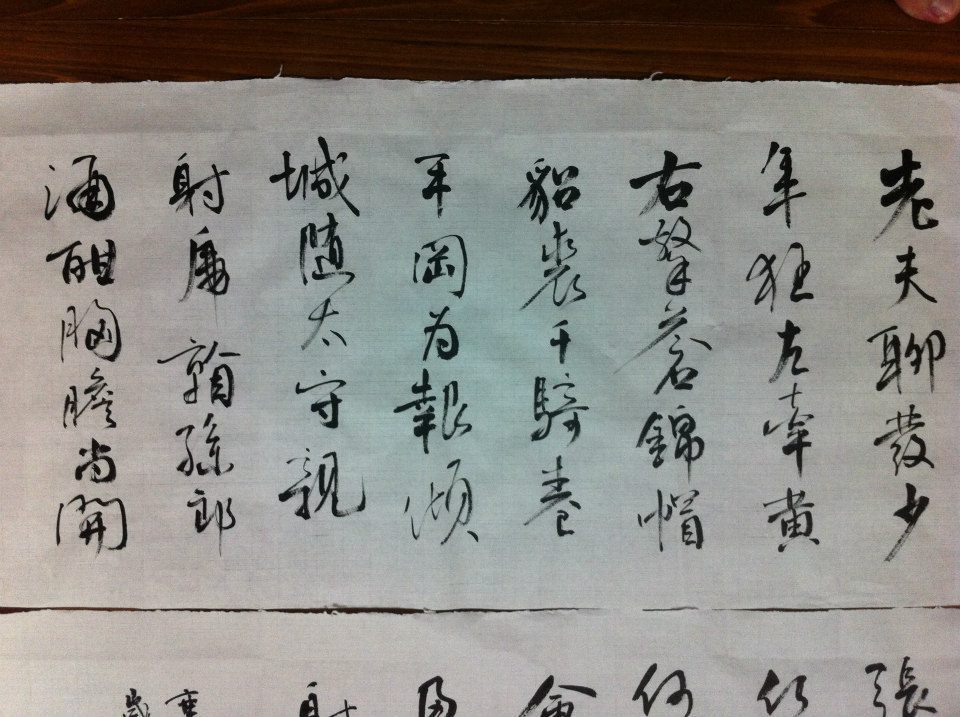 老夫聊發少
年狂左牽黃
右擎蒼錦帽
貂裘千騎卷
平岡為報傾
城隨太守親
射虎看孫郎
酒酣胸膽尚開
張
何
會
射
歲